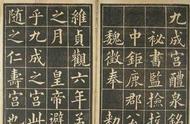 九成宮醴泉銘
祕書監檢校
中鉅鹿郡公
魏徵奉勅
維貞觀六年
之月皇帝避
乎九成之宮
之仁壽宮